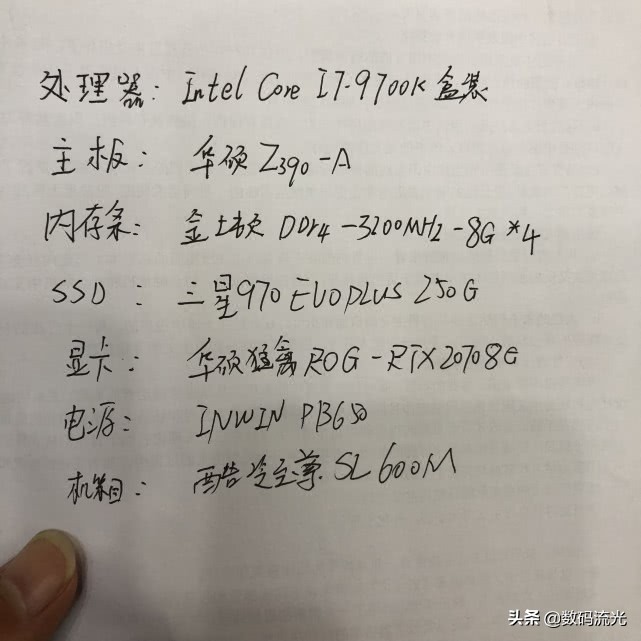 处理器：Intel Core I7-9700K盒装
主板：华硕Z390-A
内存条：金士顿 DDr4-3200MHz-8G*4
SSD：三星970EVOPLUS 250G
显卡：华硕猛禽ROG-RTX20708G
电源：INWIN PB650
机箱：酷冷至尊SL600M
头条 @数码流光